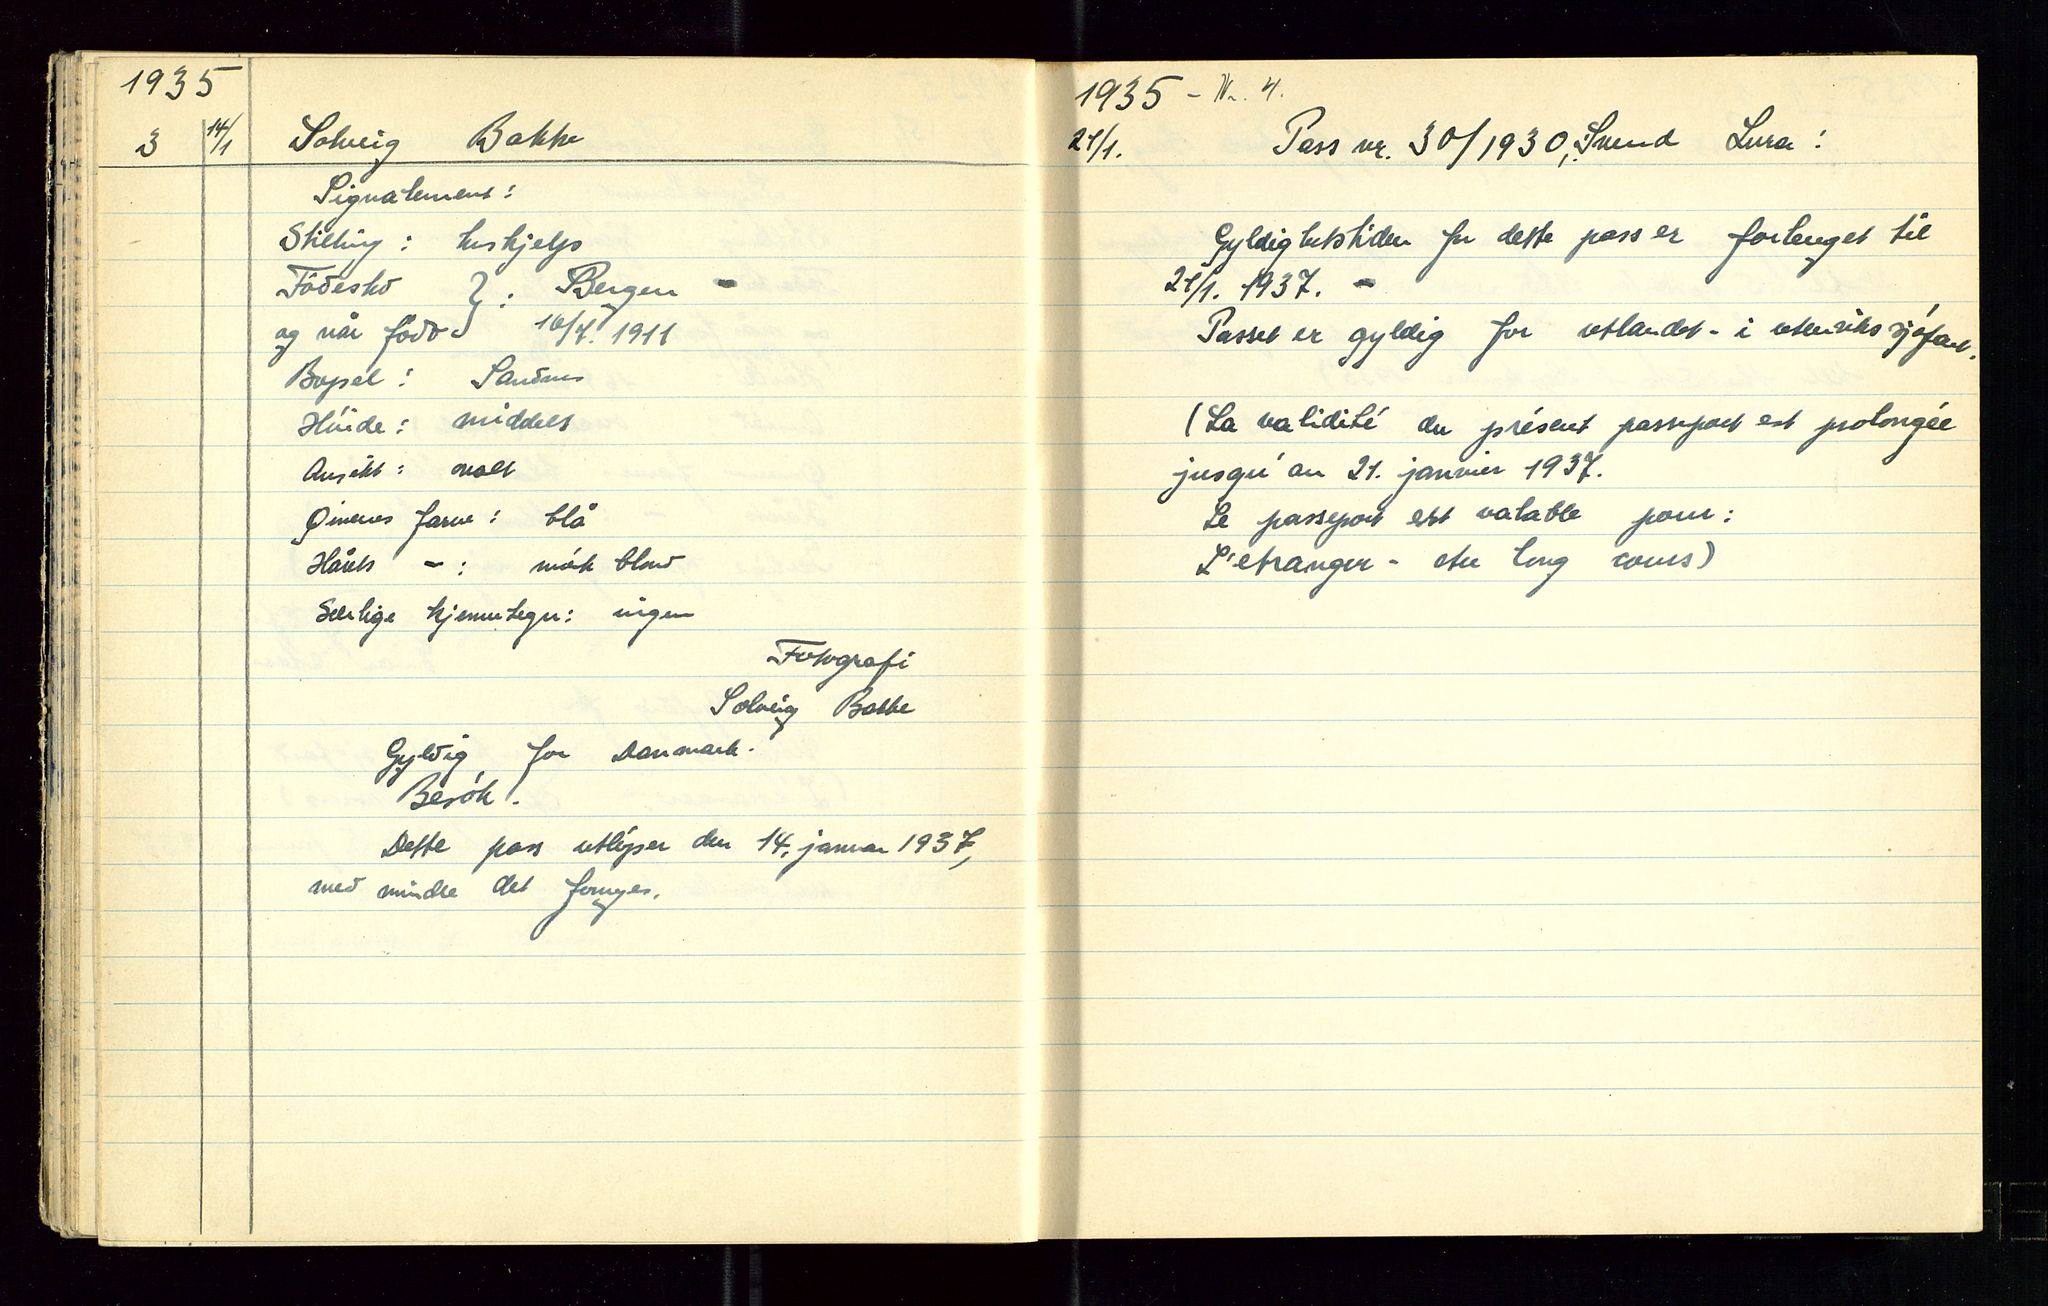 1935
3 14/1 Solveig Bakke
Signalement:
Stilling: huskjelp
Födested } : Bergen -
og når född 16/4. 1911
Bopel: Sandnes
Höide: middels
Ansikt: ovalt
Øinenes farve: blå
Hårets -: mörk blond
Særlige kjennetegn: ingen
Fotografi
Solveig Bakke
Gyldig for Danmark.
Besök.
Dette pass utlöper den 14. januar 1937,
med mindre det fornyes.
1935 - Nr. 4.
21/1. Pass nr. 30/1930, Svend Lura:
Gyldighetstiden for dette pass er forlenget til
21/1. 1937. -
Passet er gyldig for utlandet - i utenriks sjöfart.
(La validité du présent passeport est prolongée
jusqu'au 21. janvier 1937.
Le passeport est valable pour:
L'etranger - au long cours)